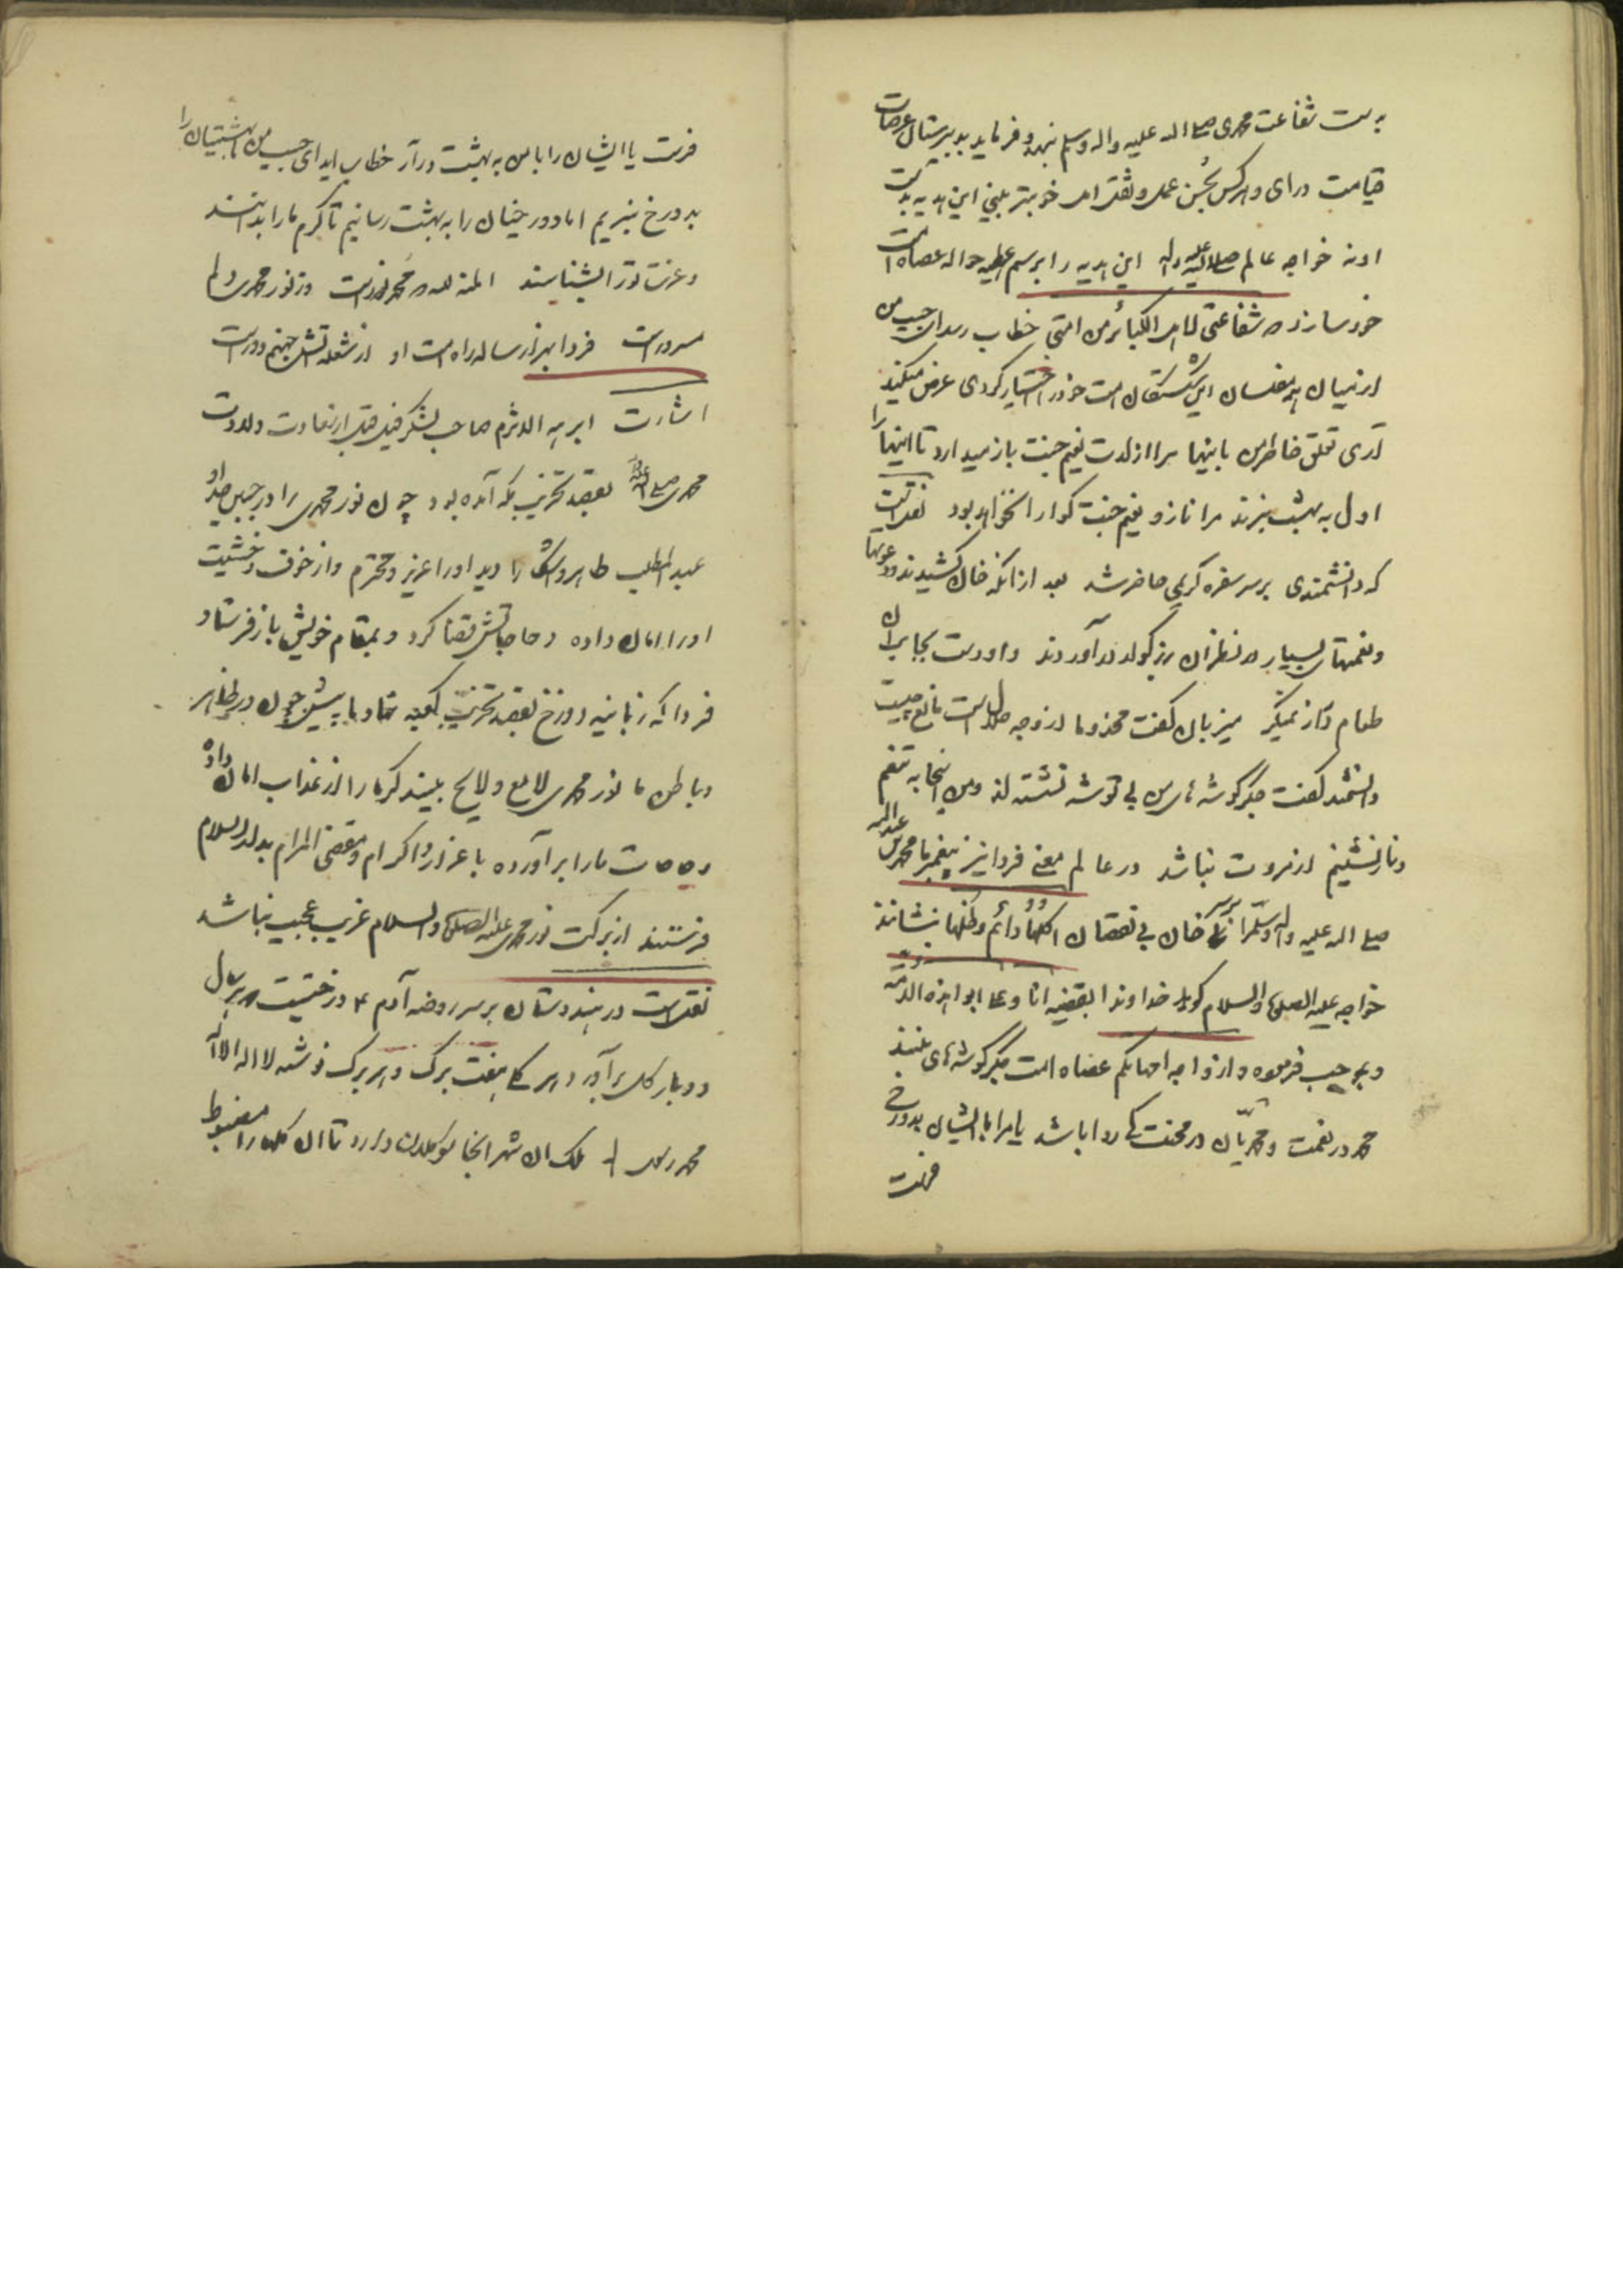 به ست شفاعت محمدی صلی الله علیه واله وسلم بنهد و فرماید بدبیرستان عرصات
قیامت درای وهرکس بحسن عمل و ثقل اوست خوبتر بینی این هدیه بدست
اونه خواجه عالم صلی الله علیه واله این هدیه را برسم عطیه حواله عصاه امت
خود سازد که شفاعتی لاهل الکبائر من امتی خطاب رسد ای حبیب من
از میان همه مفلسان این شکستگان امت خود را اختیار کردی عرض میکند
آری تعلق خاطر من باینها مرا از لذت نعیم جنت باز میدارد تا اینها را
اول به بهشت نبرند مرا ناز و نعیم جنت گوارا نخواهد بود نقلست
که دانشمندی بر سر سفره کریمی حاضر شد بعد از انکه خوان کشیدند و دعوتها
ونعمتهای بسیار در نظر ان بزرگوار درآوردند و او دست بجانب ان
طعام دراز نمیکرد میزبان گفت مخدوما از وجه حلال است مانع چیست
دانشمند گفت جگرگوشه های من بی توشه نشسته اند ومن اینجا به تنعم
وناز نشینم از مروت نباشد در عالم معنی فردا نیز پیغمبر ما محمد بن عبدالله
صلی الله علیه واله وسلم را بر سر خوان بی نقصان اکلها دائم وظلها بنشانند
خواجه علیه الصلوة والسلام گوید خداوندا
وبموجب فرموده وازواجه امهاتکم عصاه امت جگرگوشه های منند
محمد در نعمت و محمدیان در محنت کی روا باشد یا مرا با ایشان بدوزخ
فرست
فرست یا ایشان را با من به بهشت درآر خطاب اید ای حبیب من ما بهشتیان را
بدوزخ نبریم اما دوزخیان را به بهشت رسانیم تا کرم ما را بدانند
وعزت تو را بشناسند المنة لله که محمد نورست وز نور محمدی دلم
مسرورست فردا بهزار ساله راه امت او از شعله آتش جهنم دورست
اشارت ابرهه الاشرم صاحب لشکر فیل قبل از سعادت ولادت
محمدی صلی الله علیه واله بقصد تخریب مکه آمده بود چون نور محمدی را در جبین جد او
عبد المطلب ظاهر و اشکارا دید او را عزیز و محترم و از خوف و خشیت
او را امان داده و حاجاتش قضا کرد و بمقام خویش باز فرستاد
فردا که زبانیه دوزخ بقصد تخریب کعبه نهاد ما پیش چون در ظاهر
وباطن ما نور محمدی لامع و لایح بیند گر ما را از عذاب امان داده
وحاجات ما را برآورده با عزاز و اکرام و مقضی المرام بدار السلام
فرستند از برکت نور محمدی علیه الصلوة والسلام غریب و عجیب نباشد
نقلست در هندوستان بر سر روضه آدم ع درختیست هر سال
دو بار گل برآورد هر گلی هفت برگ و هر برگ نوشته لا اله الا الله
محمد رسول الله ملک ان شهر انجا موکلان دارد تا ان گلها را مضبوط